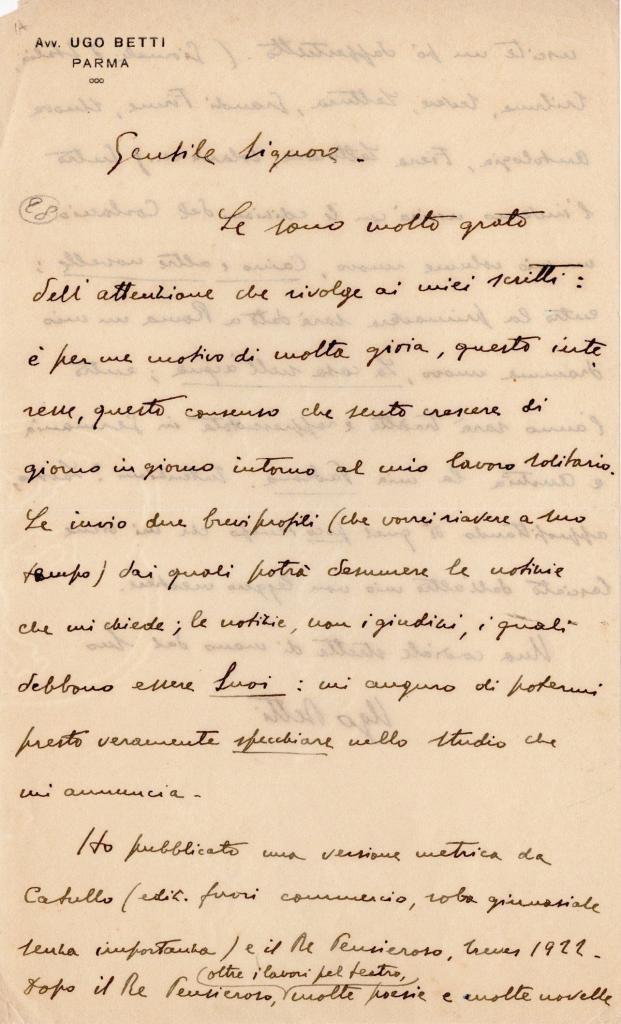 Avv. UGO BETTI
PARMA
Gentile Signore.
Le sono molto grato
dell'attenzione che rivolge ai miei scritti:
è per me motivo di molta gioia, questo inte
resse, questo consenso che sento crescere di
giorno in giorno intorno al mio lavoro solitario.
Le invio due brevi profili (che vorrei riavere a suo
tempo) dai quali potrà desumere le notizie
che mi chiede; le notizie, non i giudizi, i quali
debbono essere Suoi: mi auguro di potermi
presto veramente specchiare nello studio che
mi annuncia.
Ho pubblicato una versione metrica da
Catullo (ediz. fuori commercio, roba ginnasiale
senza importanza) e il Re Pensieroso, Treves 1922.
Dopo il Re Pensieroso, (oltre i lavori pel teatro, molte poesie e molte novelle